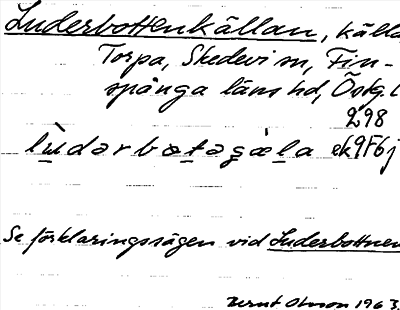 Luderbottenkällan, källa
Torpa, Skedevi sn, Fin-
spånga läns hd, Östg. l
298
lùdərbɷtəgæla ek 9F6j
Se förklaringssägen vid Luderbottnen
Bernt Olsson 1963.